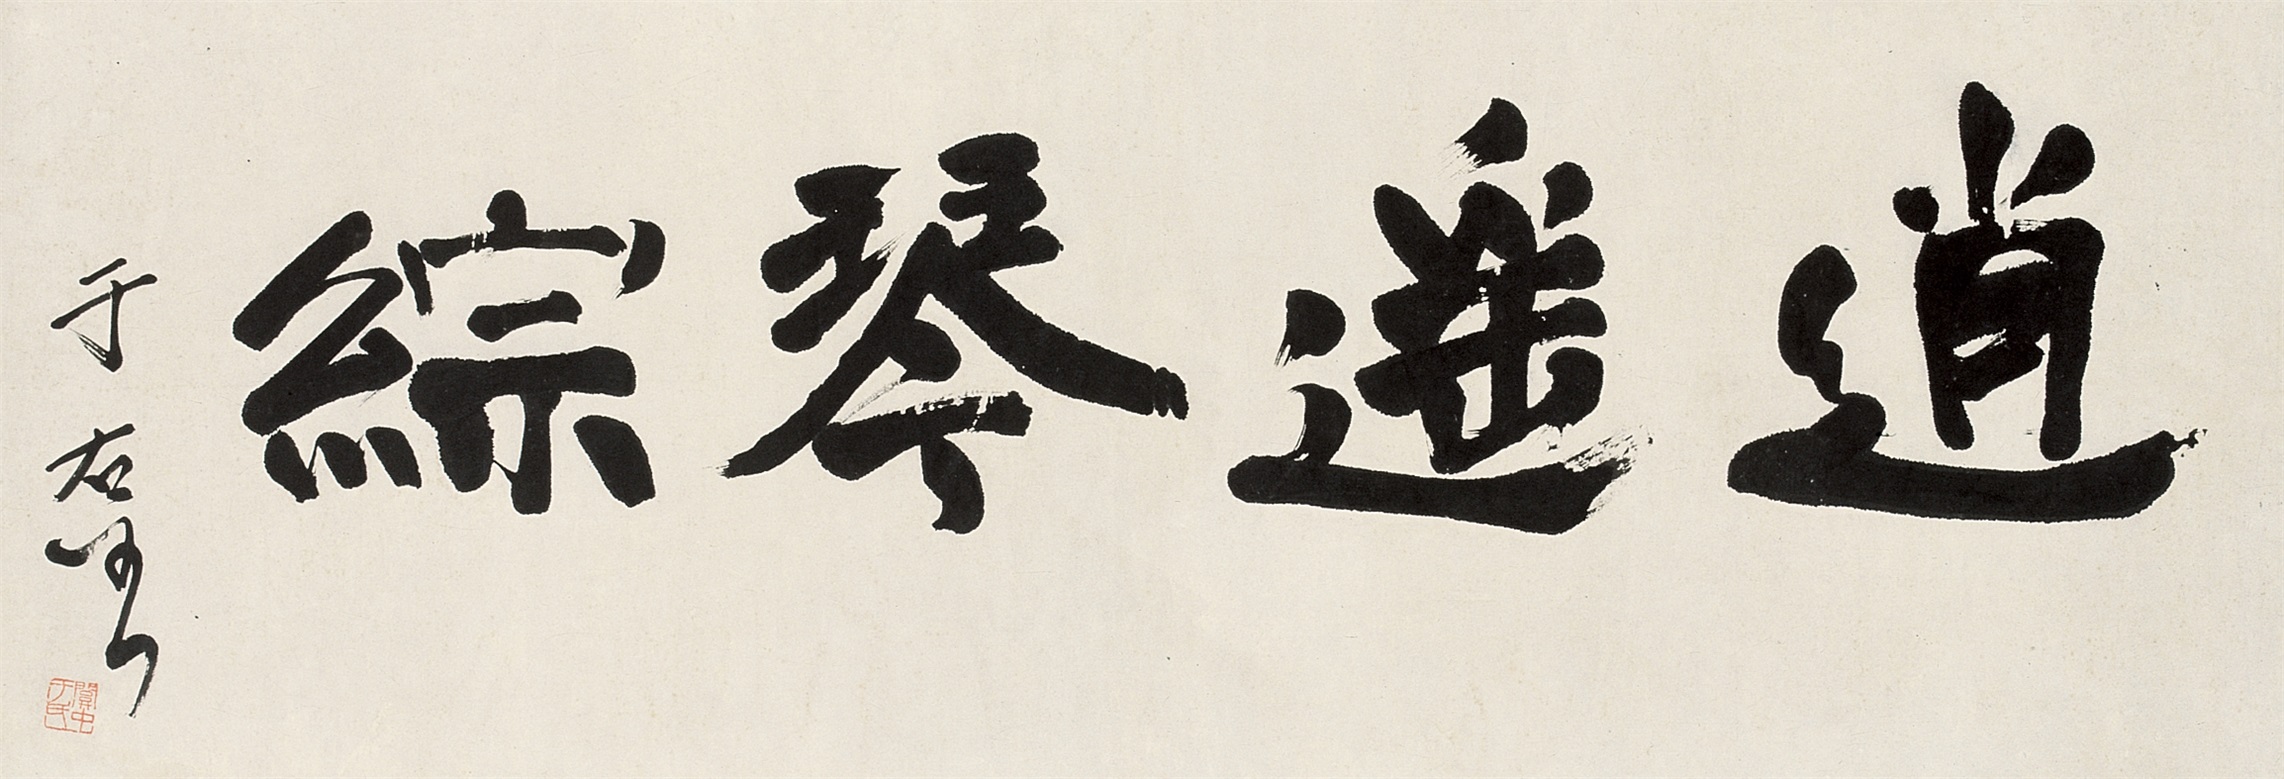 逍遥琴綜
于右任
關中于氏